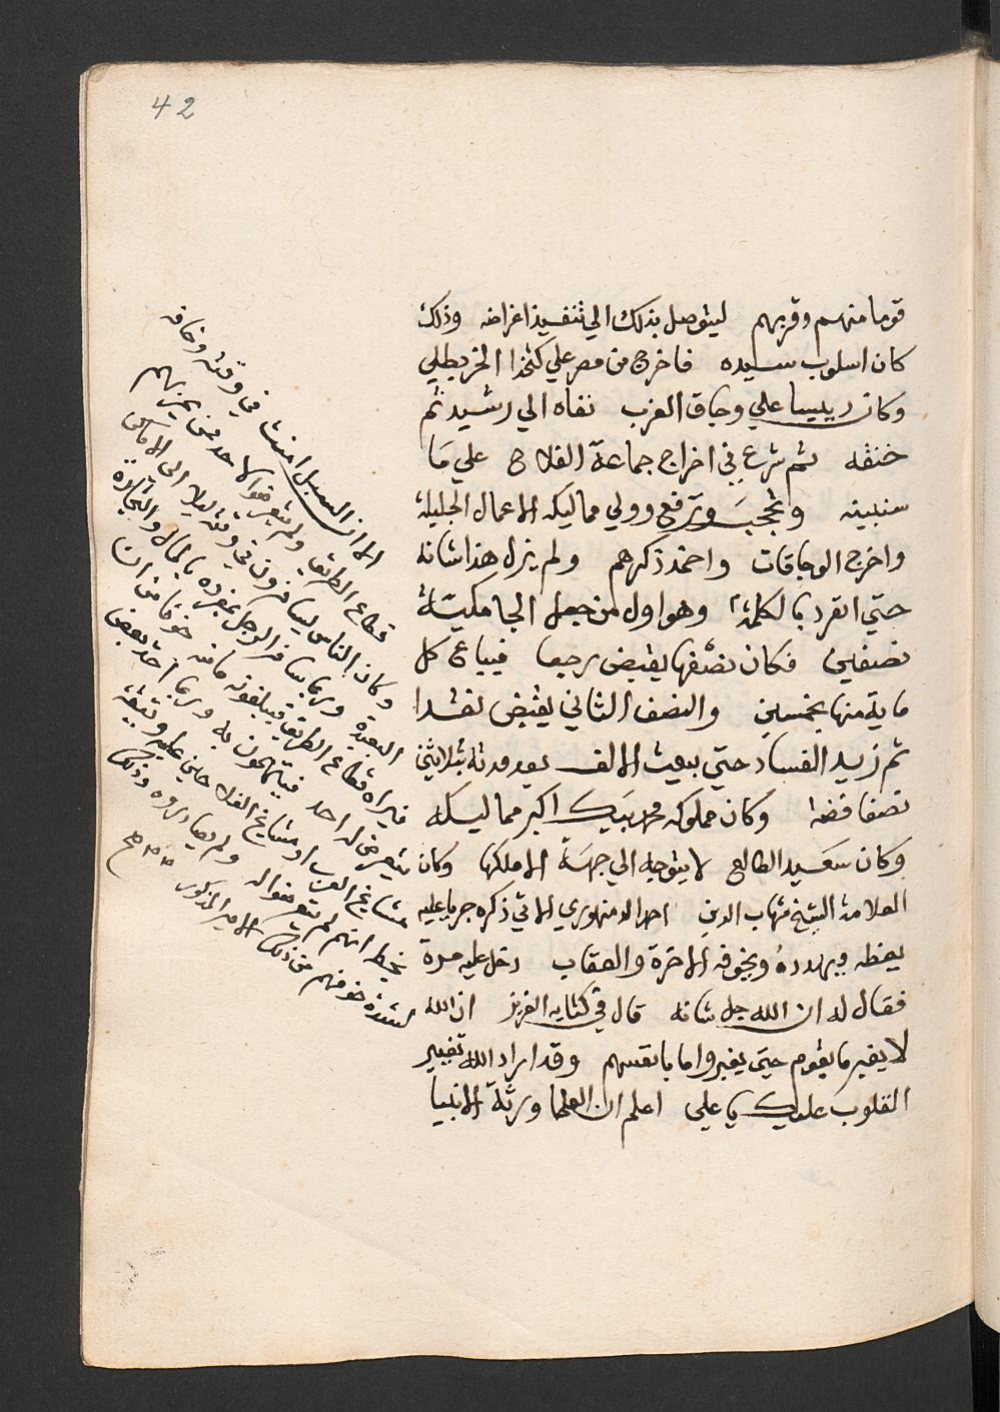 42
قوما منهم وقربهم ليتوصل بذلك الي تنفيذ اغراضه وذلك
كان اسلوب سيده فاخرج من مصر علي كتخدا الخربطلي
وكان رييسا علي وجاق العزب نفاه الي رشيد ثم
خنقه ثم شرع في اخراج جماعة الفلاح علي ما
سنبينه وتحجب وترفع وولي مماليكه الاعمال الجليلة
واخرج الوجاقات واخمد ذكرهم ولم يزل هذا شانه
حتي انفرد بالكلمة وهو اول من جعل الجامكية
نصفين فكان نصفها يقبض رجعا فيباع كل
ماية منها بخمسين والنصف الثاني يقبض نقدا
ثم زيد الفساد حتي بيعت الالف بعد مدته بثلاثين
نصفا فضة وكان مملوكه محمد بيك اكبر مماليكه
وكان سعيد الطالع لا يتوجه الي جهة الا ملكها وكان
العلامة الشيخ شهاب الدين احمد الدمنهوري الاتي ذكره جريا عليه
يعظه ويهدده ويخوفه الاخرة والعقاب دخل عليه مرة
فقال له ان الله جل شانه قال في كتابه العزيز ان الله
لا يغير ما بقوم حتي يغيروا ما بانفسهم وقد اراد الله تغيير
القلوب عليك يا علي اعلم ان العلما ورثة الانبيا
الا ان السبل امنت في وقته وخافه
قطاع الطريق ولم يتعرضوا لاحد ممن يمر بهم
وكان الناس يسافرون في وقته ليلا الي الاماكن
البعيدة وربما يسافر الرجل بمفرده بالمال والتجارة
فيراه قطاع الطريق فيبلغونه مامنه خوفا من ان
يتعرض له احد فيتهمون به وربما اخذ بعض
مشايخ العرب او مشايخ الفلاحين عليه وثيقة
بخطه انهم لم يتعرضوا له ولم يصادروه وذلك
لشدة خوفهم من ذلك الامير المذكور صح